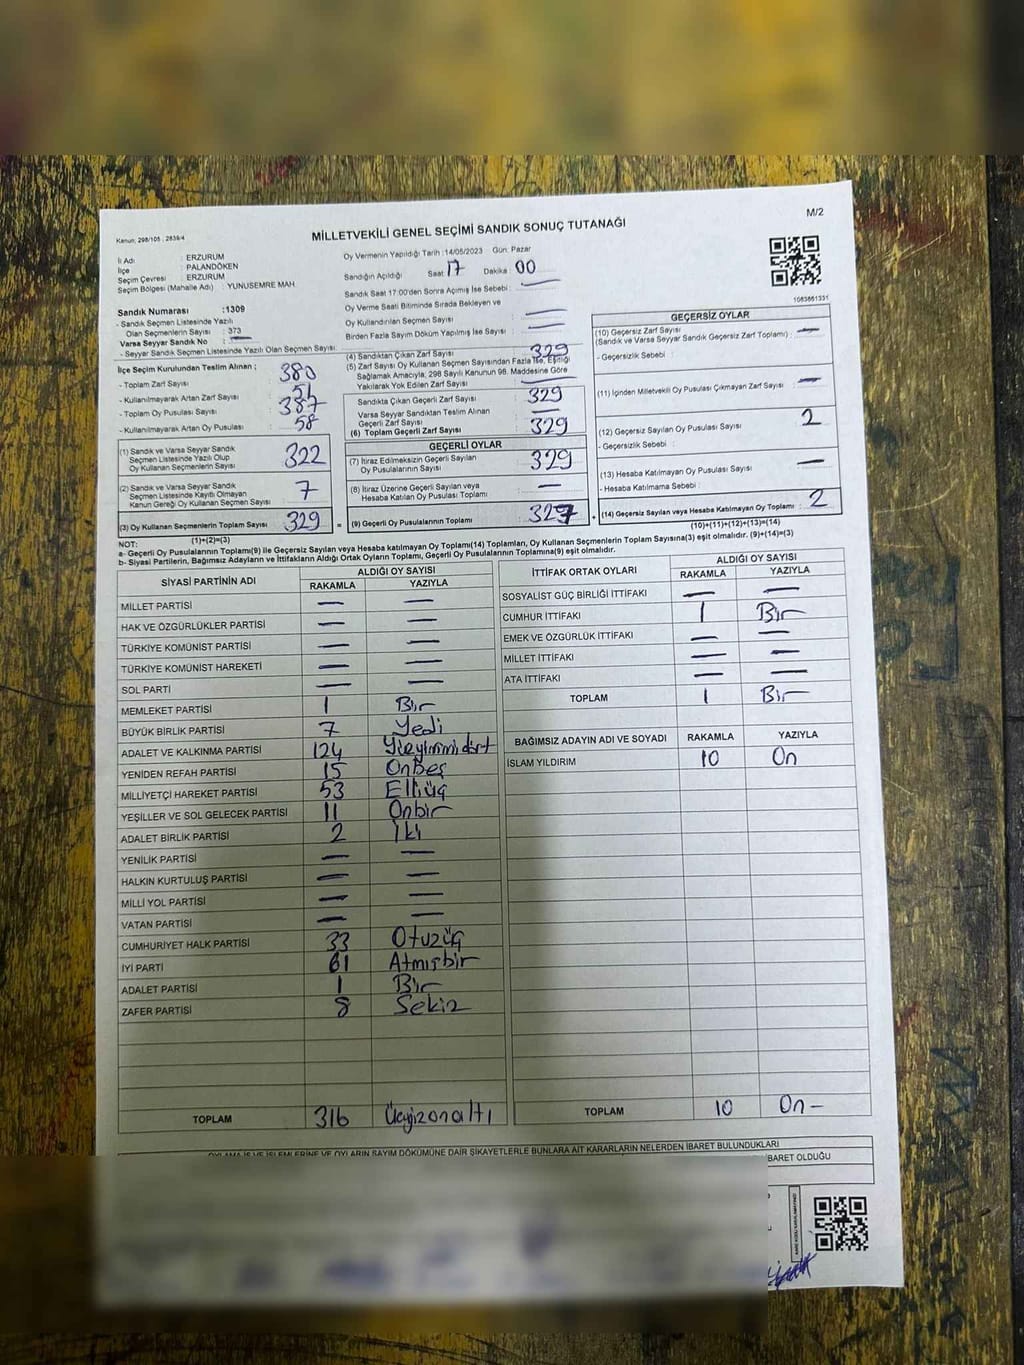 Kanun: 298/105 ; 2839/4
MİLLETVEKİLİ GENEL SEÇİMİ SANDIK SONUÇ TUTANAĞI
M/2
İl Adı : ERZURUM
İlçe : PALANDÖKEN
Seçim Çevresi : ERZURUM
Seçim Bölgesi (Mahalle Adı) : YUNUSEMRE MAH.
Sandık Numarası :1309
- Sandık Seçmen Listesinde Yazılı
Olan Seçmenlerin Sayısı : 373
Varsa Seyyar Sandık No : —
- Seyyar Sandık Seçmen Listesinde Yazılı Olan Seçmen Sayısı:
İlçe Seçim Kurulundan Teslim Alınan ;
- Toplam Zarf Sayısı : 380
- Kullanılmayarak Artan Zarf Sayısı : 51
- Toplam Oy Pusulası Sayısı : 387
- Kullanılmayarak Artan Oy Pusulası : 58
(1) Sandık ve Varsa Seyyar Sandık
Seçmen Listesinde Yazılı Olup
Oy Kullanan Seçmenlerin Sayısı : 322
(2) Sandık ve Varsa Seyyar Sandık
Seçmen Listesinde Kayıtlı Olmayan
Kanun Gereği Oy Kullanan Seçmen Sayısı : 7
(3) Oy Kullanan Seçmenlerin Toplam Sayısı : 329
(1)+(2)=(3)
Oy Vermenin Yapıldığı Tarih :14/05/2023 Gün: Pazar
Sandığın Açıldığı Saat 17 Dakika 00
Sandık Saat 17:00'den Sonra Açılmış İse Sebebi : —
Oy Verme Saati Bitiminde Sırada Bekleyen ve
Oy Kullandırılan Seçmen Sayısı : —
Birden Fazla Sayım Döküm Yapılmış İse Sayısı : —
(4) Sandıktan Çıkan Zarf Sayısı : 329
(5) Zarf Sayısı Oy Kullanan Seçmen Sayısından Fazla İse, Eşitliği
Sağlamak Amacıyla, 298 Sayılı Kanunun 98. Maddesine Göre
Yakılarak Yok Edilen Zarf Sayısı : —
Sandıkta Çıkan Geçerli Zarf Sayısı : 329
Varsa Seyyar Sandıktan Teslim Alınan
Geçerli Zarf Sayısı : —
(6) Toplam Geçerli Zarf Sayısı : 329
GEÇERLİ OYLAR
(7) İtiraz Edilmeksizin Geçerli Sayılan
Oy Pusulalarının Sayısı : 329
(8) İtiraz Üzerine Geçerli Sayılan veya
Hesaba Katılan Oy Pusulası Toplamı : —
= (9) Geçerli Oy Pusulalarının Toplamı : 327
1063861331
GEÇERSİZ OYLAR
(10) Geçersiz Zarf Sayısı
(Sandık ve Varsa Seyyar Sandık Geçersiz Zarf Toplamı) : —
- Geçersizlik Sebebi :
(11) İçinden Milletvekili Oy Pusulası Çıkmayan Zarf Sayısı : —
(12) Geçersiz Sayılan Oy Pusulası Sayısı : 2
- Geçersizlik Sebebi :
(13) Hesaba Katılmayan Oy Pusulası Sayısı : —
- Hesaba Katılmama Sebebi :
+ (14) Geçersiz Sayılan veya Hesaba Katılmayan Oy Toplamı : 2
(10)+(11)+(12)+(13)=(14)
NOT:
a- Geçerli Oy Pusulalarının Toplamı(9) ile Geçersiz Sayılan veya Hesaba katılmayan Oy Toplamı(14) Toplamları, Oy Kullanan Seçmenlerin Toplam Sayısına(3) eşit olmalıdır. (9)+(14)=(3)
b- Siyasi Partilerin, Bağımsız Adayların ve İttifakların Aldığı Ortak Oyların Toplamı, Geçerli Oy Pusulalarının Toplamına(9) eşit olmalıdır.
SİYASİ PARTİNİN ADI ALDIĞI OY SAYISI
RAKAMLA YAZIYLA
MİLLET PARTİSİ — —
HAK VE ÖZGÜRLÜKLER PARTİSİ — —
TÜRKİYE KOMÜNİST PARTİSİ — —
TÜRKİYE KOMÜNİST HAREKETİ — —
SOL PARTİ — —
MEMLEKET PARTİSİ 1 Bir
BÜYÜK BİRLİK PARTİSİ 7 Yedi
ADALET VE KALKINMA PARTİSİ 124 Yüzyirmidört
YENİDEN REFAH PARTİSİ 15 Onbeş
MİLLİYETÇİ HAREKET PARTİSİ 53 Elliüç
YEŞİLLER VE SOL GELECEK PARTİSİ 11 Onbir
ADALET BİRLİK PARTİSİ 2 İki
YENİLİK PARTİSİ — —
HALKIN KURTULUŞ PARTİSİ — —
MİLLİ YOL PARTİSİ — —
VATAN PARTİSİ — —
CUMHURİYET HALK PARTİSİ 33 Otuzüç
İYİ PARTİ 61 Atmışbir
ADALET PARTİSİ 1 Bir
ZAFER PARTİSİ 8 Sekiz
TOPLAM 316 Üçyüzonaltı
İTTİFAK ORTAK OYLARI ALDIĞI OY SAYISI
RAKAMLA YAZIYLA
SOSYALİST GÜÇ BİRLİĞİ İTTİFAKI — —
CUMHUR İTTİFAKI 1 Bir
EMEK VE ÖZGÜRLÜK İTTİFAKI — —
MİLLET İTTİFAKI — —
ATA İTTİFAKI — —
TOPLAM 1 Bir
BAĞIMSIZ ADAYIN ADI VE SOYADI RAKAMLA YAZIYLA
İSLAM YILDIRIM 10 On
TOPLAM 10 On —
OYLAMA İŞ VE İŞLEMLERİNE VE OYLARIN SAYIM DÖKÜMÜNE DAİR ŞİKAYETLERLE BUNLARA AİT KARARLARIN NELERDEN İBARET BULUNDUKLARI
İBARET OLDUĞU